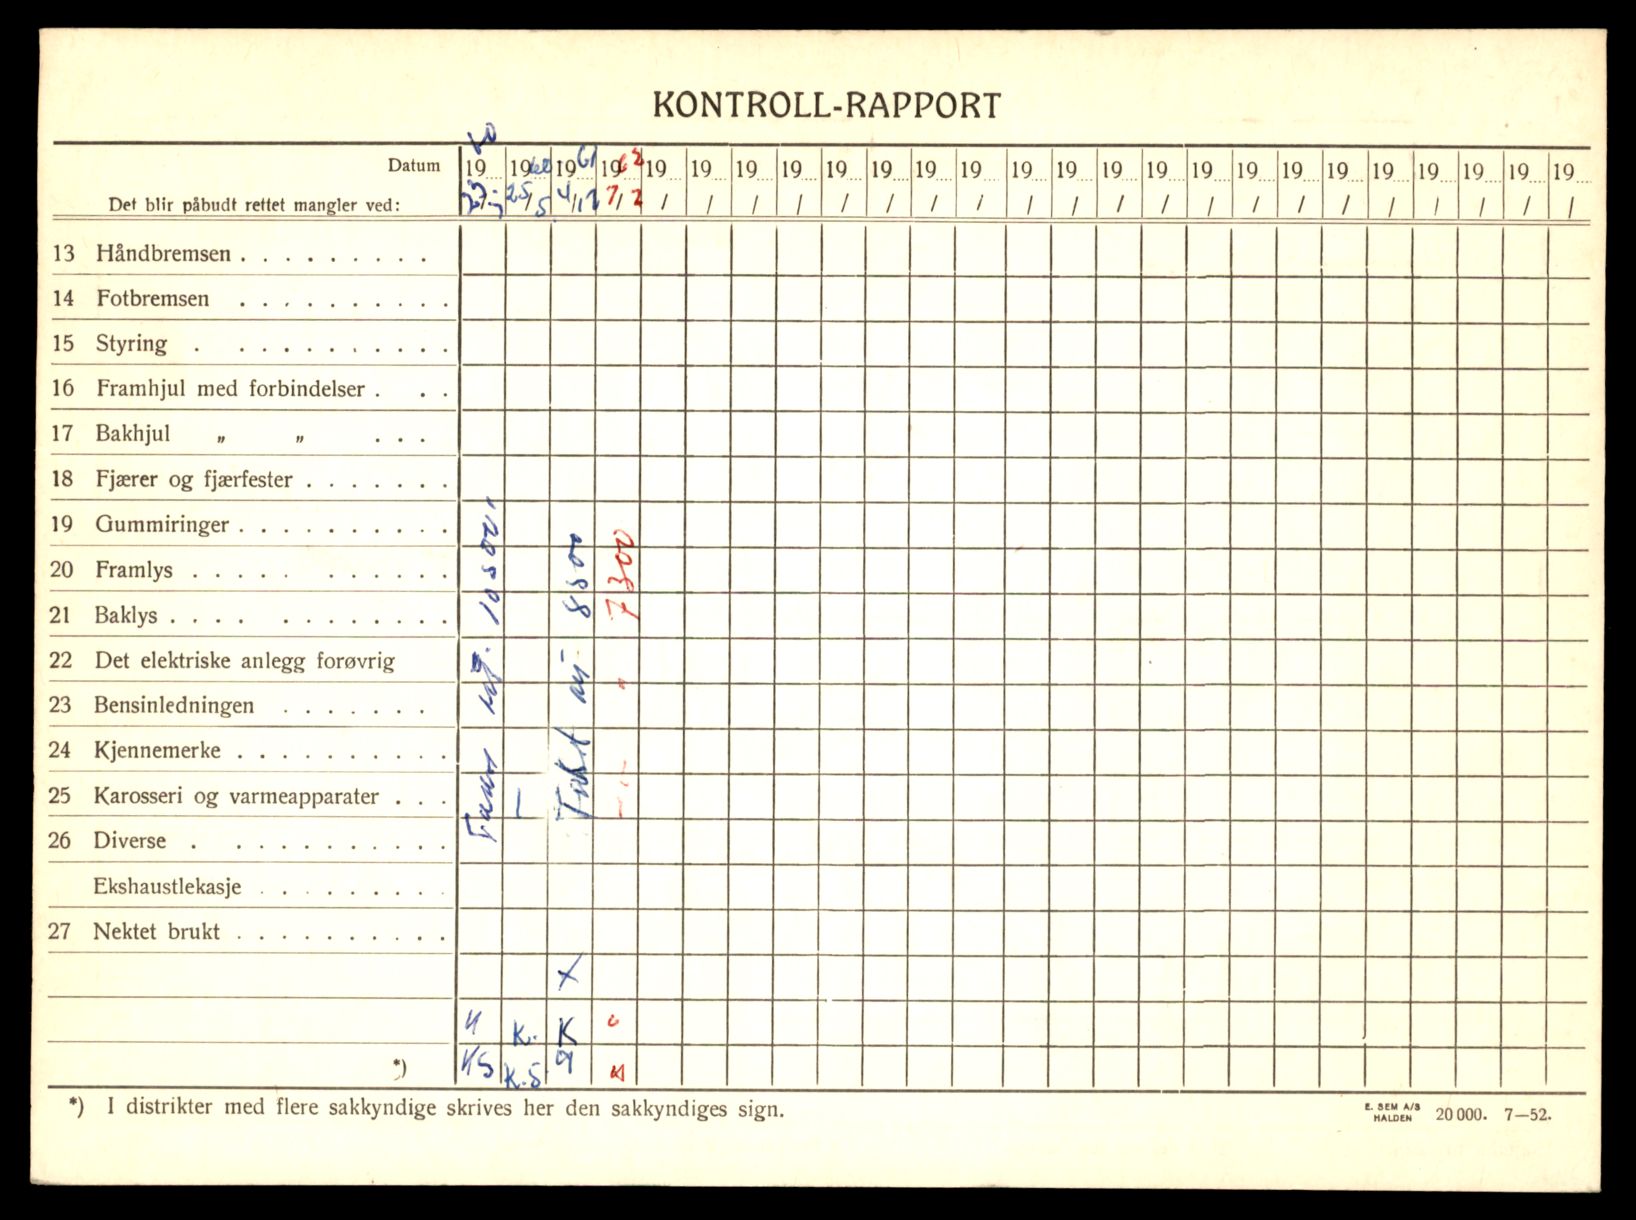 KONTROLL-RAPPORT
Datum 1960 1960 1961 1962 19 19 19 19 19 19 19 19 19 19 19 19 19 19 19 19 19 19 19 19 19
Det blir påbudt rettet mangler ved: 25/5 4/12 7/2 / / / / / / / / / / / / / / / / / / / / /
13 Håndbremsen
14 Fotbremsen
15 Styring
16 Framhjul med forbindelser
17 Bakhjul „ „
18 Fjærer og fjærfester
19 Gummiringer
20 Framlys
21 Baklys
22 Det elektriske anlegg forøvrig
23 Bensinledningen
24 Kjennemerke
25 Karosseri og varmeapparater
26 Diverse
Ekshaustlekasje
27 Nektet brukt
10500
8500
7300
Takst
x
K. K
*) KS K.S
*) I distrikter med flere sakkyndige skrives her den sakkyndiges sign.
E. SEM A/S
HALDEN 20 000. 7—52.